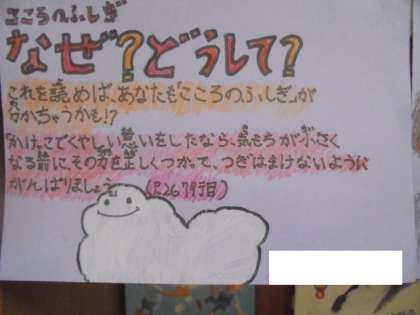 こころのふしぎ
なぜ?どうして?
これを読めば、あなたも「こころのふしぎ」が
分かちゃうかも!?
「かけっこでくやしい思いをしたなら、気もちが小さく
なる前にその力を正しくつかって、つぎはまけないように
がんばりましょう。」(P.26 7行目)